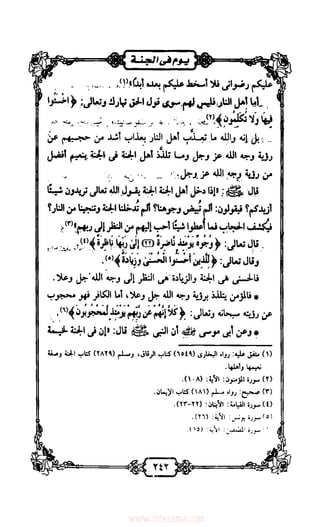 يوم في الجنة
عليكم رضواني فلا أسخط عليكم بعده أبدًا»(١).
أما أهل النار فليس لهم سوى قول الحق تبارك وتعالى: ﴿اخْسَئُوا
فِيهَا وَلَا تُكَلِّمُونِ﴾(٢).
بل إنه والله ما تعذَّب أهل النار بعذاب أشد من حجبهم عن
رؤية وجه الله عز وجل وما تلذَّذ أهل الجنة في الجنة بنعيم أفضل
من رؤية وجه الله عز وجل.
قال ﷺ: «إذا دخل أهل الجنة الجنة يقول الله تعالى تريدون شيئًا
أزيدكم؟ فيقولون: ألم تُبيض وجوهنا؟ ألم تُدخلنا الجنة وتنجينا من النار؟
فيُكشف الحجاب فما أُعطوا شيئًا أحب إليهم من النظر إلى ربهم»(٣)
قال تعالى: ﴿وُجُوهٌ يَوْمَئِذٍ نَّاضِرَةٌ (٢٢) إِلَىٰ رَبِّهَا نَاظِرَةٌ﴾(٤).
وقال تعالى: ﴿لِلَّذِينَ أَحْسَنُوا الْحُسْنَىٰ وَزِيَادَةٌ﴾(٥).
فالحسنى هي الجنة والزيادة هي النظر إلى وجه الله جل وعلا.
* فالمؤمن يتلذذ برؤية وجه الله جل وعلا، أما الكافر فهو محجوب
عن رؤيته سبحانه وتعالى: ﴿كَلَّا إِنَّهُمْ عَن رَّبِّهِمْ يَوْمَئِذٍ لَّمَحْجُوبُونَ﴾(٦).
* وعن أبي موسى رضي الله عنه أن النبي ﷺ قال: «إن في الجنة خيمة
(١) متفق عليه: رواه البخاري (٦٥٤٩) كتاب الرقاق، ومسلم (٢٨٢٩) كتاب الجنة وصفة
نعيمها وأهلها.
(٢) سورة المؤمنون: الآية: (١٠٨).
(٣) صحيح: رواه مسلم (١٨١) كتاب الإيمان.
(٤) سورة القيامة: الآيتان: (٢٢-٢٣).
(٥) سورة يونس: الآية: (٢٦).
(٦) سورة المطففين: الآية: (١٥).
٢٤٢